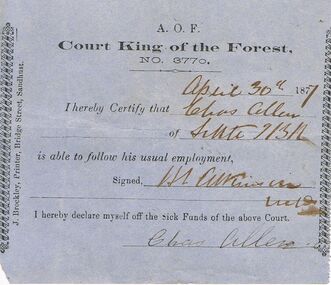 A. O. F.
Court King of the Forest,
NO. 3770.
April 30th 1871
I hereby Certify that Chas Allen
of
is able to follow his usual employment,
Signed, H Atkinson
I hereby declare myself off the Sick Funds of the above Court.
Chas Allen
J. Brockley, Printer, Bridge Street, Sandhurst.